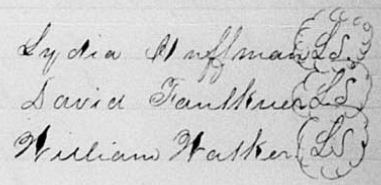 Lydia Huffman LS.
David Faulkner LS
William Walker LS